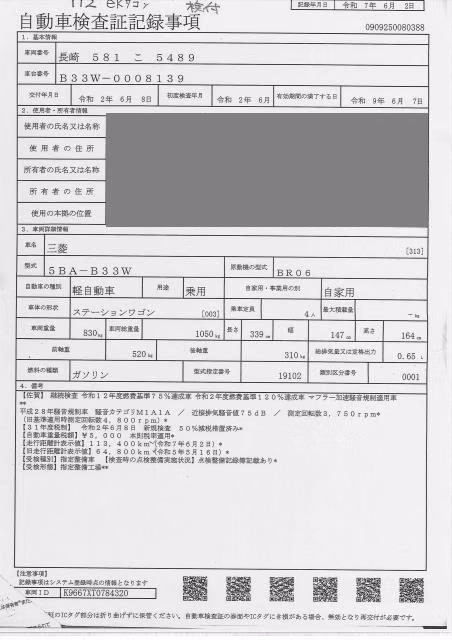 112 eKワゴン 検付
記録年月日 令和 7年 6月 2日
自動車検査証記録事項
0909250080388
1. 基本情報
車両番号 長崎 581 こ 5489
車台番号 B33W-0008139
交付年月日 令和 2年 6月 8日 初度検査年月 令和 2年 6月 有効期間の満了する日 令和 9年 6月 7日
2. 使用者・所有者情報
使用者の氏名又は名称
使用者の住所
所有者の氏名又は名称
所有者の住所
使用の本拠の位置
3. 車両詳細情報
車名 三菱 [313]
型式 5BA-B33W 原動機の型式 BR06
自動車の種別 軽自動車 用途 乗用 自家用・事業用の別 自家用
車体の形状 ステーションワゴン [003] 乗車定員 4人 最大積載量 -kg
車両重量 830kg 車両総重量 1050kg 長さ 339cm 幅 147cm 高さ 164cm
前軸重 520kg 後軸重 310kg 総排気量又は定格出力 0.65L
燃料の種類 ガソリン 型式指定番号 19102 類別区分番号 0001
4. 備考
【佐賀】 継続検査 令和12年度燃費基準75%達成車 令和2年度燃費基準120%達成車 マフラー加速騒音規制適用車
**
平成28年騒音規制車 騒音カテゴリM1A1A / 近接排気騒音値75dB / 測定回転数3,750rpm*
(旧基準適用時測定回転数4,800rpm)*
【31年度税制】 令和2年6月8日 新規検査 50%減税相当済み*
【自動車重量税額】¥5,000 本則税率適用*
【走行距離計表示値】113,400km(令和7年6月2日)*
【旧走行距離計表示値】64,800km(令和5年5月16日)*
【受検種別】指定整備車 【検査時の点検整備実施状況】点検整備記録簿記載あり*
【受検形態】指定整備工場**
【注意事項】
記録事項はシステム登録時点の情報となります
車両ID K9667XT0784320
証のICタグ部分は折り曲げずに保管ください。自動車検査証の券面やICタグにき損がある場合、無効となり再交付が必要です。